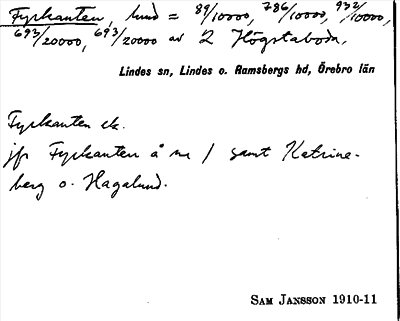 Fyrkanten, lund = 89/10000, 786/10000, 932/10000,
693/20000, 693/20000 av 2 Högstaboda,
Lindes sn, Lindes o. Ramsbergs hd, Örebro län
Fyrkanten ek.
jfr Fyrkanten å nr 1 samt Katrine-
berg o. Hagalund.
SAM JANSSON 1910-11